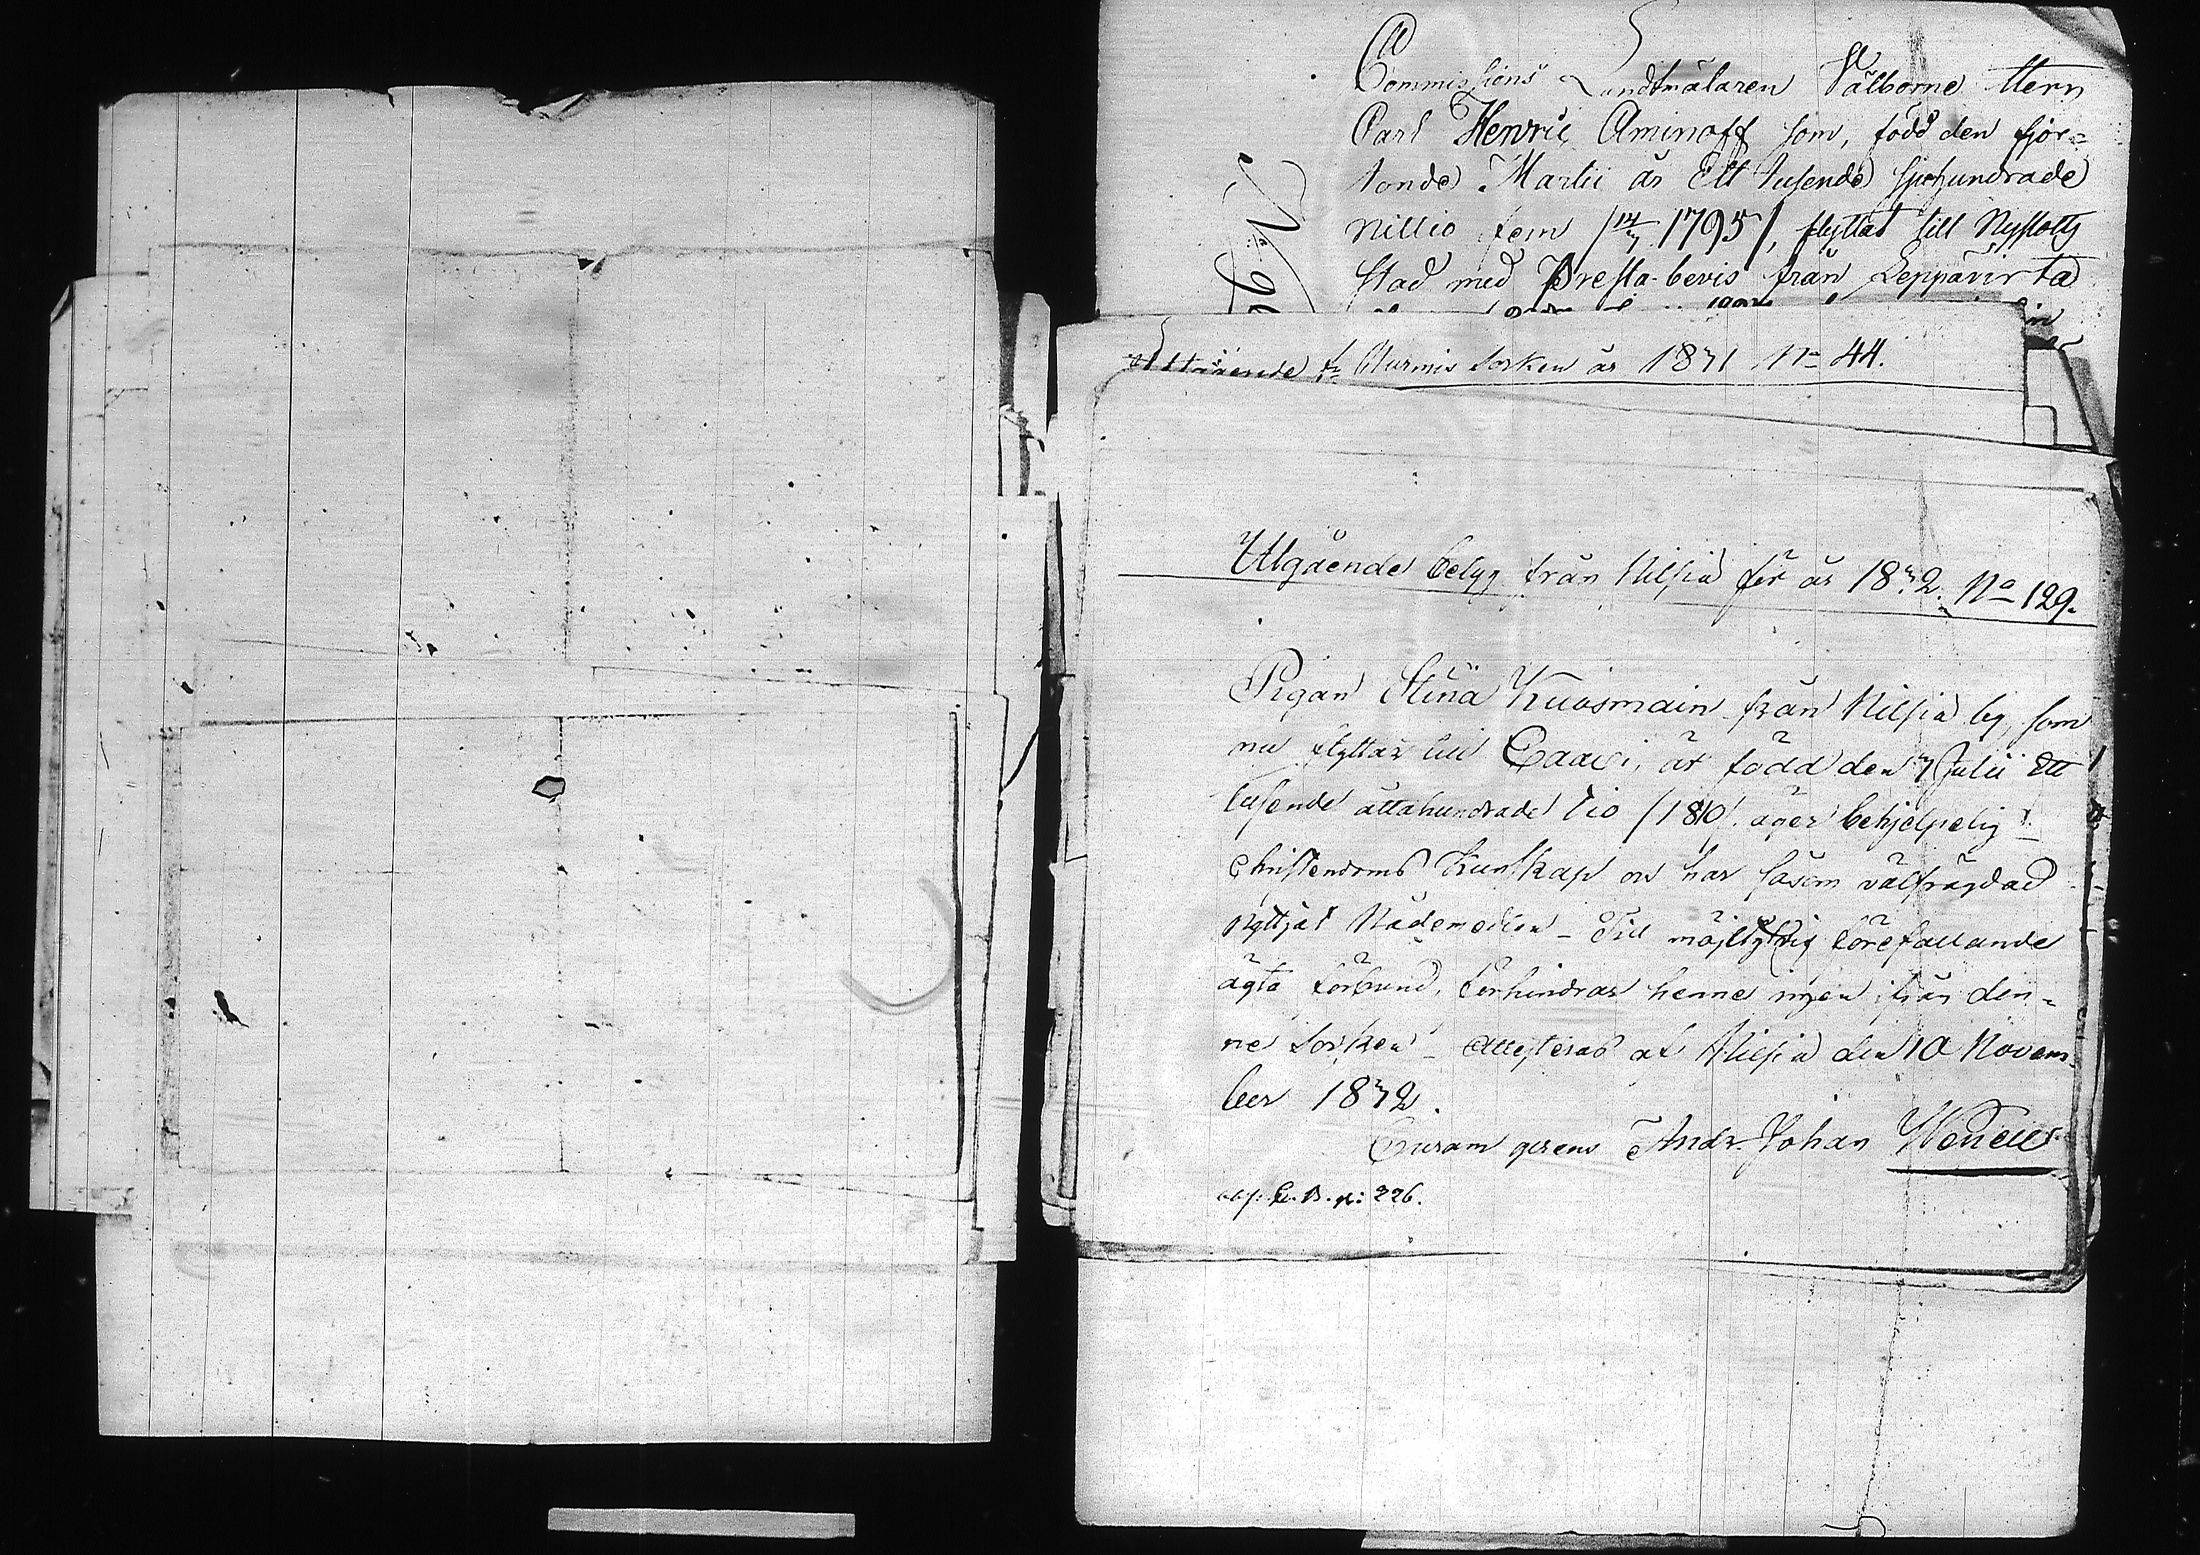 Commissions Landtmälaren Välborne Herr
Carl Henric Aminoff som, född den fjor=
tonde Martii år Ett tusende sjuhundrade
nittio fem 1795, flyttat till Nyslotts
stad med Presta-bevis från Leppävirta
Nurmis socken år 1831 No 44.
Utgående betyg från Nilsiä för år 1832. No 129.
Pigan Stina Kuosmain från Nilsiä by, som
nu flyttar till Caavi, är född den 7 Julii Ett
tusende åttahundrade Tio /1810/. äger behjelpelig
Christendoms Kunskap och har såsom välfrägdad
nyttjat Nådemedlen – Till förefallande
ägta förbund, förhindrar henne ingen ifrån den=
ne Socken – Attesteras af Nilsiä den 10 Novem
ber 1832.
Curam gerens Andr. Johan
p: 226.